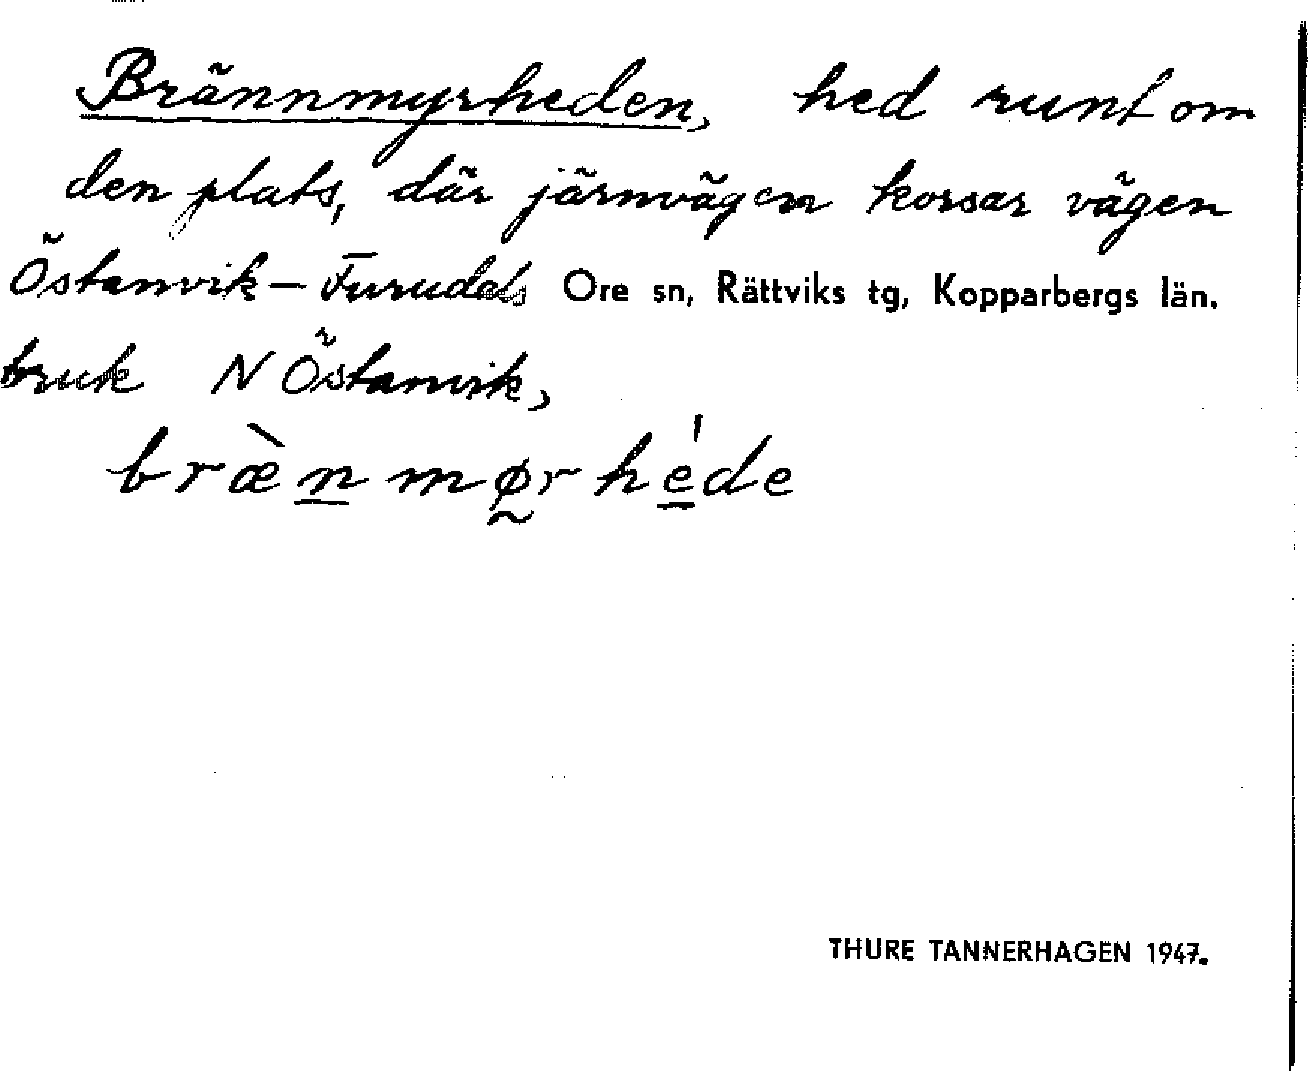 Brännmyrheden, hed runt om
den plats, där järnvägen korsar vägen
Östanvik – Furudals Ore sn, Rättviks tg, Kopparbergs län.
bruk N Östanvik,
bræ̀n̲mø̰rhe̲̍de
THURE TANNERHAGEN 1947.